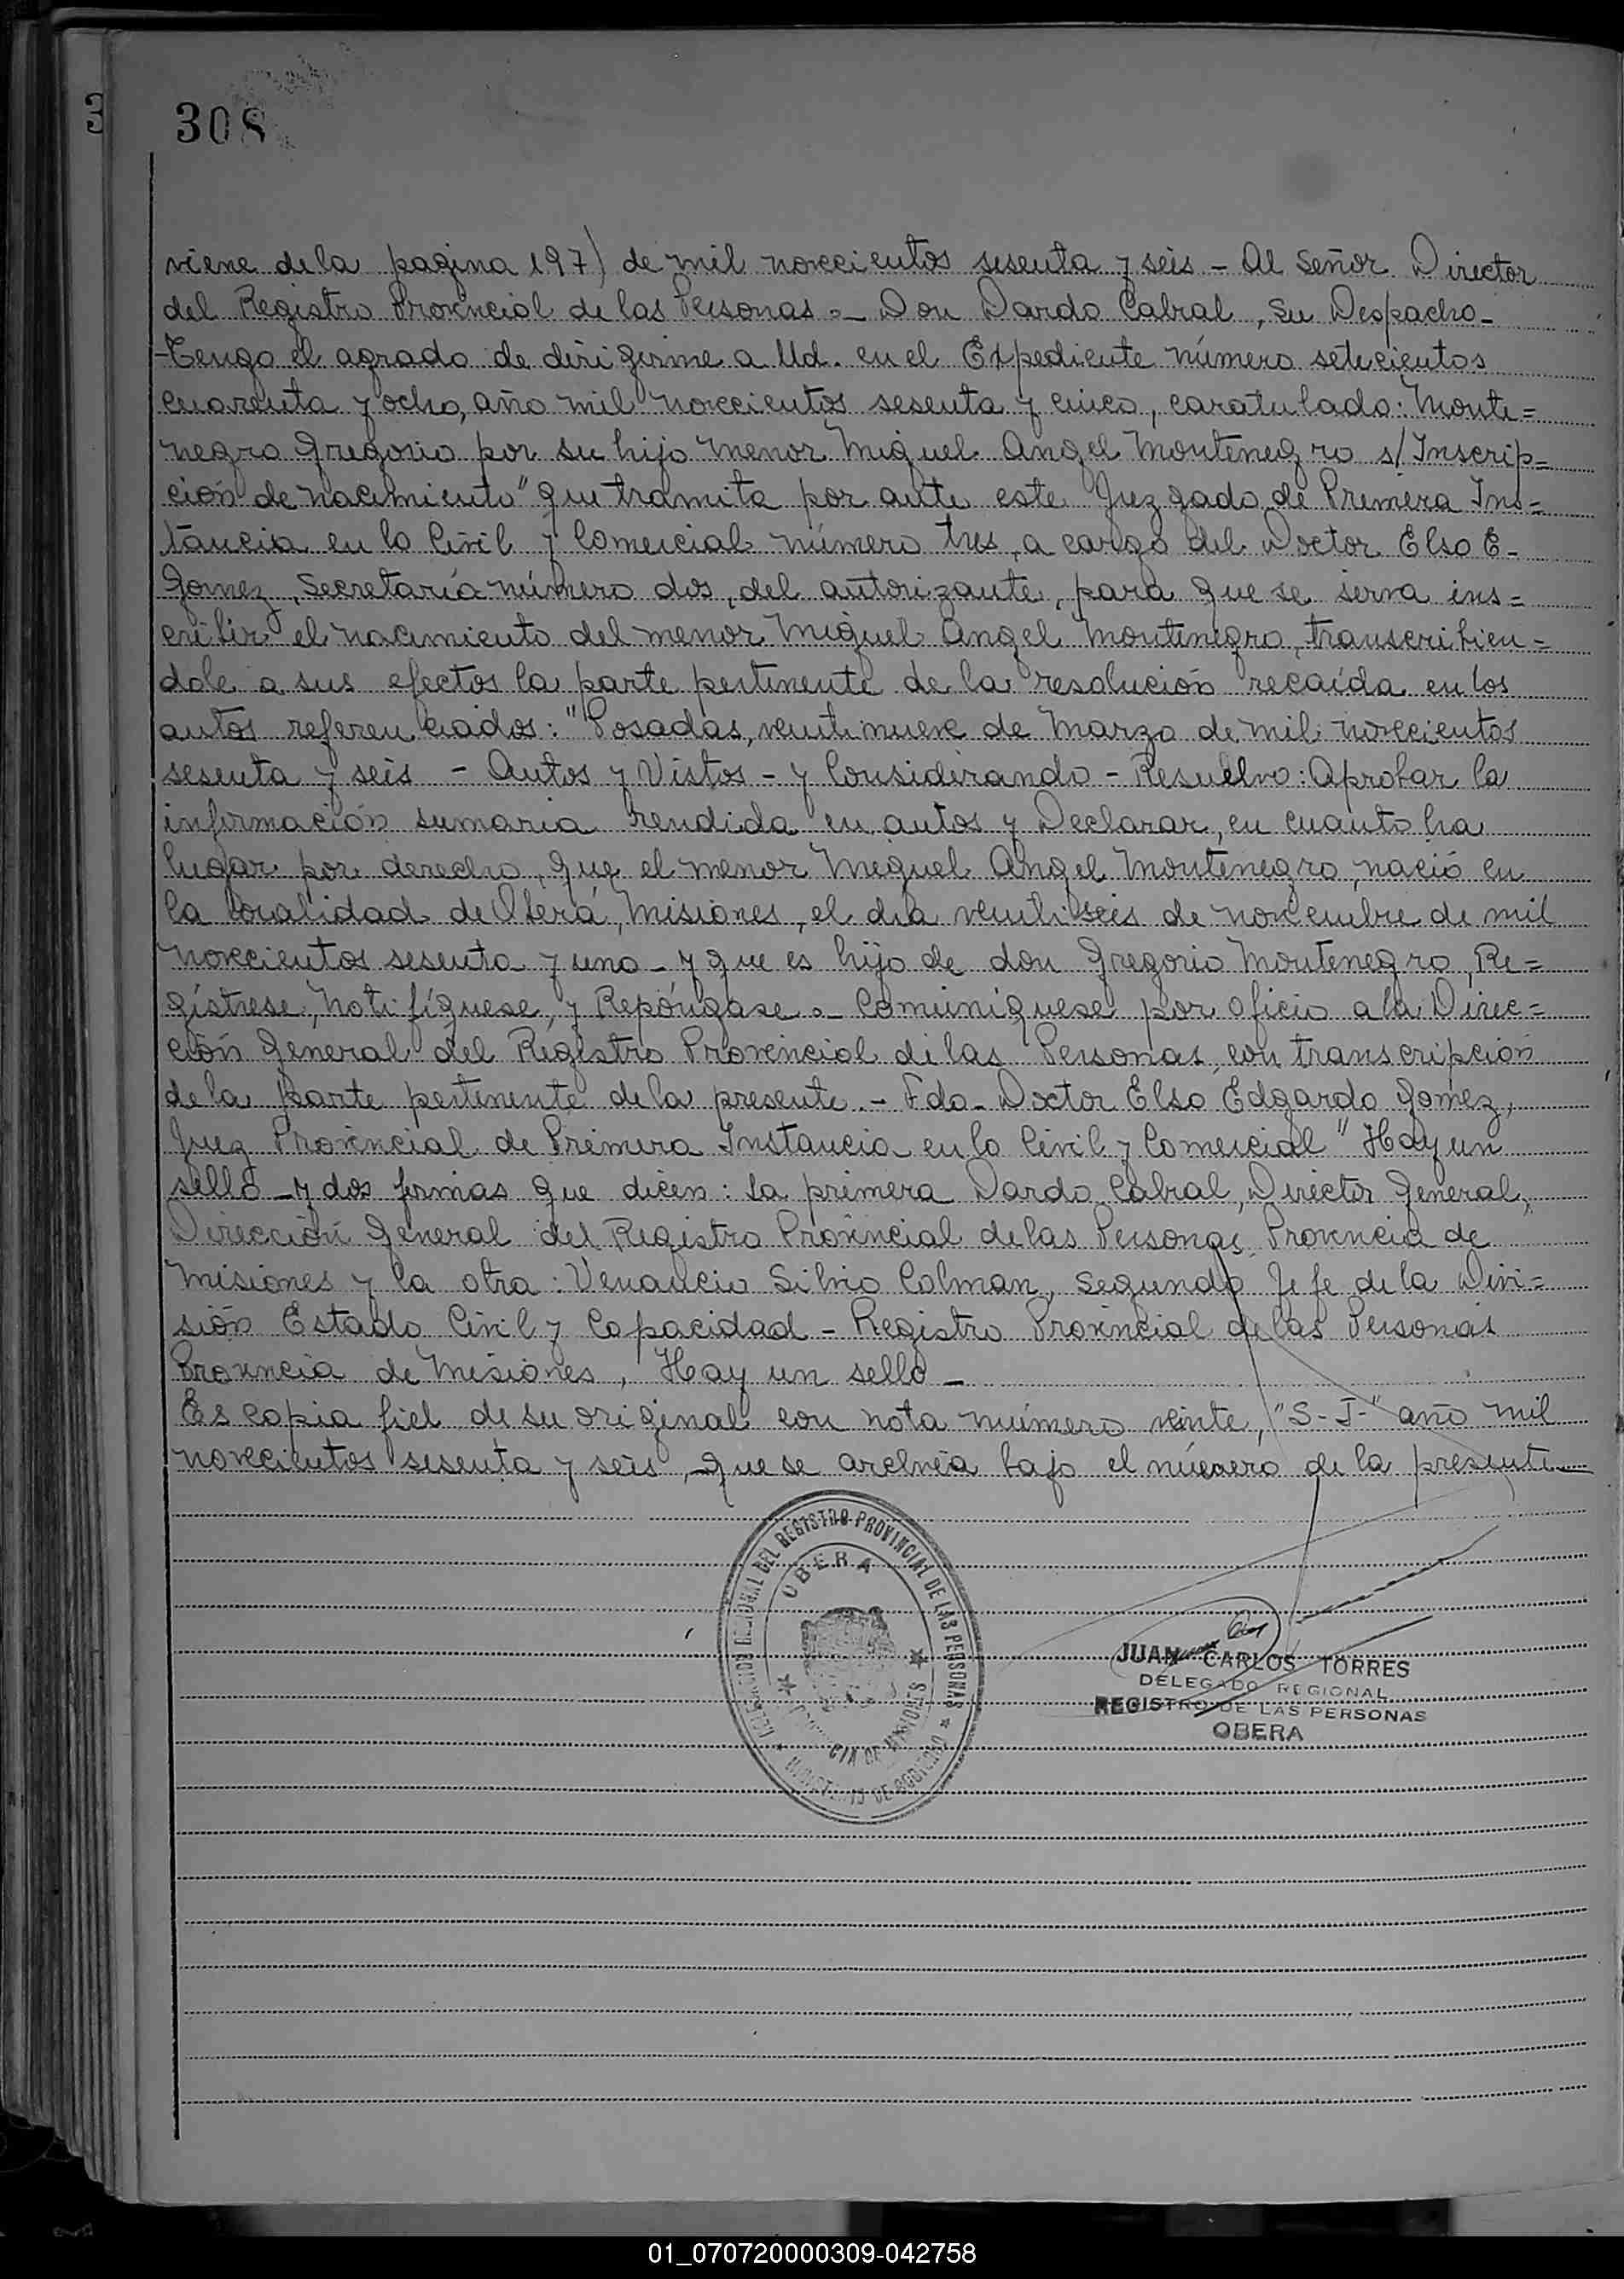 3
308
viene de la pagina 197) de mil novecientos sesenta y seis - Al Señor Director
del Registro Provincial de las Personas.- Don Dardo Cabral, Su Despacho-
-Tengo el agrado de dirigirme a Ud. en el Expediente número setecientos
cuarenta y ocho, año mil novecientos sesenta y cinco, caratulado: Monte=
negro Gregorio por su hijo menor Miguel Angel Montenegro s/ Inscrip=
ción de nacimiento" que tramita por ante este Juzgado de Primera Ins=
tancia en lo Civil y Comercial número tres, a cargo del Doctor Elso E-
Gomez, Secretaría número dos, del autorizante, para que se sirva ins=
cribir el nacimiento del menor Miguel Angel Montenegro, transcribien=
dole a sus efectos la parte pertinente de la resolución recaída en los
autos referenciados: "Posadas, veintinueve de Marzo de mil novecientos
sesenta y seis - Autos y Vistos - y Considerando - Resuelvo: Aprobar la
información sumaria rendida en autos y Declarar, en cuanto ha
lugar por derecho, que el menor Miguel Angel Montenegro, nació en
la localidad de Oberá, Misiones, el día veintiseis de noviembre de mil
novecientos sesenta y uno - y que es hijo de don Gregorio Montenegro, Re=
gístrese, Notifíquese, y Repóngase.- Comuníquese por oficio a la Direc=
ción General del Registro Provincial de las Personas, con transcripción
de la parte pertinente de la presente.- Fdo- Doctor Elso Edgardo Gomez,
Juez Provincial de Primera Instancia en lo Civil y Comercial" Hay un
sello - y dos firmas que dicen: la primera Dardo Cabral, Director General,
Dirección General del Registro Provincial de las Personas, Provincia de
Misiones y la otra: Venancio Silvio Colman, Segundo Jefe de la Divi=
sión Estado Civil y Capacidad - Registro Provincial de las Personas
Provincia de Misiones, Hay un sello -
Es copia fiel de su original con nota número veinte, "S-J-" año mil
novecientos sesenta y seis, que se archiva bajo el número de la presente
REGIONAL DEL REGISTRO PROVINCIAL DE LAS PERSONAS
OBERA
PROVINCIA DE MISIONES
MINISTERIO DE GOBIERNO
JUAN CARLOS TORRES
DELEGADO REGIONAL
REGISTRO DE LAS PERSONAS
OBERA
01_070720000309-042758